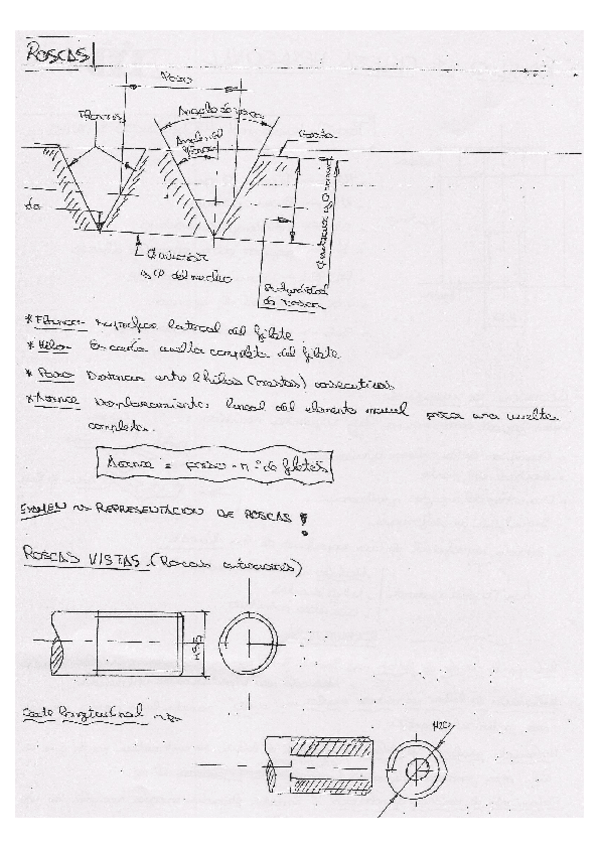 ROSCAS
Paso
Flancos
Angulo de rosca
Angulo del
flanco
Cresta
Ø interior
Ø del nucleo
Profundidad
de rosca
* Flanco- superficie lateral del filete.
* Hélice- Es cada vuelta completa del filete
* Paso Distancia entre 2 hélices (crestas) consecutivas
* Avance Desplazamiento lineal del elemento movil para una vuelta
completa.
Avance = paso · nº de filetes
EXAMEN REPRESENTACION DE ROSCAS !
ROSCAS VISTAS (Roscas exteriores)
Corte longitudinal
M20